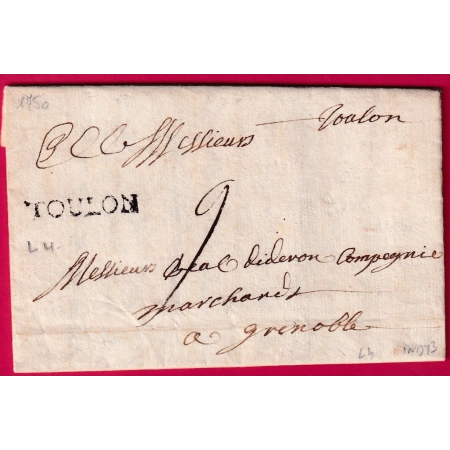 1750
Messieurs Toulon
TOULON
9
L 4
Messieurs Beal dideron Compegnie
marchandt
a grenoble
L4 IND13